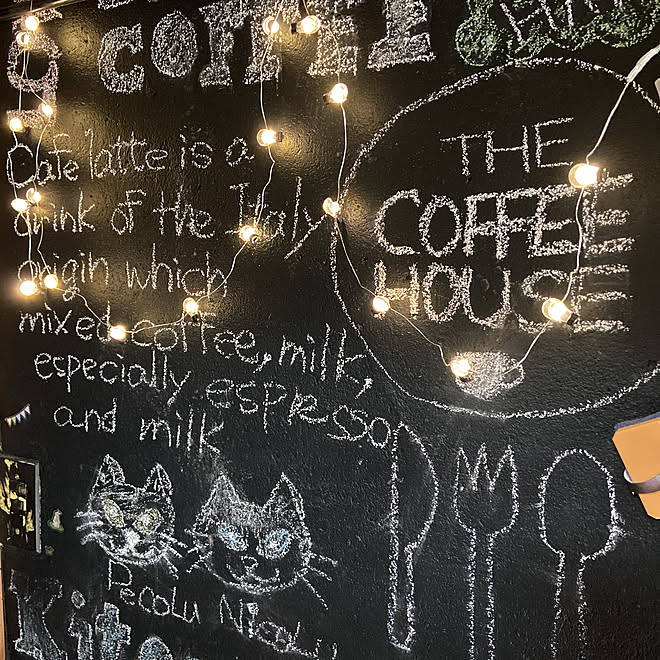 COFFEE
Cafe latte is a
drink of the Italy
origin which
mixed coffee, milk,
especially espresso
and milk
THE
COFFEE
HOUSE
Pecolu Nicolu